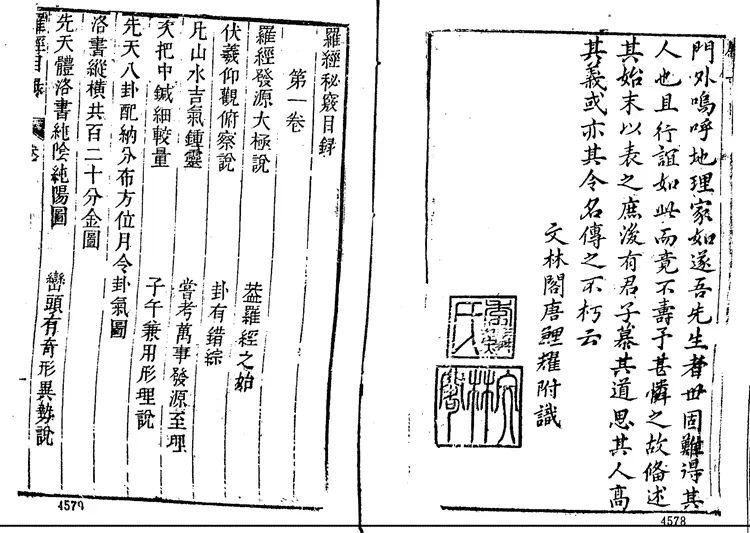 門外嗚呼地理家如遂吾先生者世固難得其
人也且行誼如此而竟不壽予甚憐之故備述
其始末以表之庶後有君子慕其道思其人高
其義或亦其令名傳之不朽云
文林閣唐鯉耀附識
文林閣
4578
羅經秘竅目録
第一卷
羅經發源大極說
葢羅經之始
伏羲仰觀俯察說
卦有錯綜
凡山水吉氣鍾靈
嘗考萬事發源至理
次把中鍼細較量
子午兼用形理說
先天八卦配納分布方位月令卦氣圖
洛書縱橫共百二十分金圖
先天體洛書純陰純陽圖
巒頭有奇形異勢說
羅經目録
卷
4579